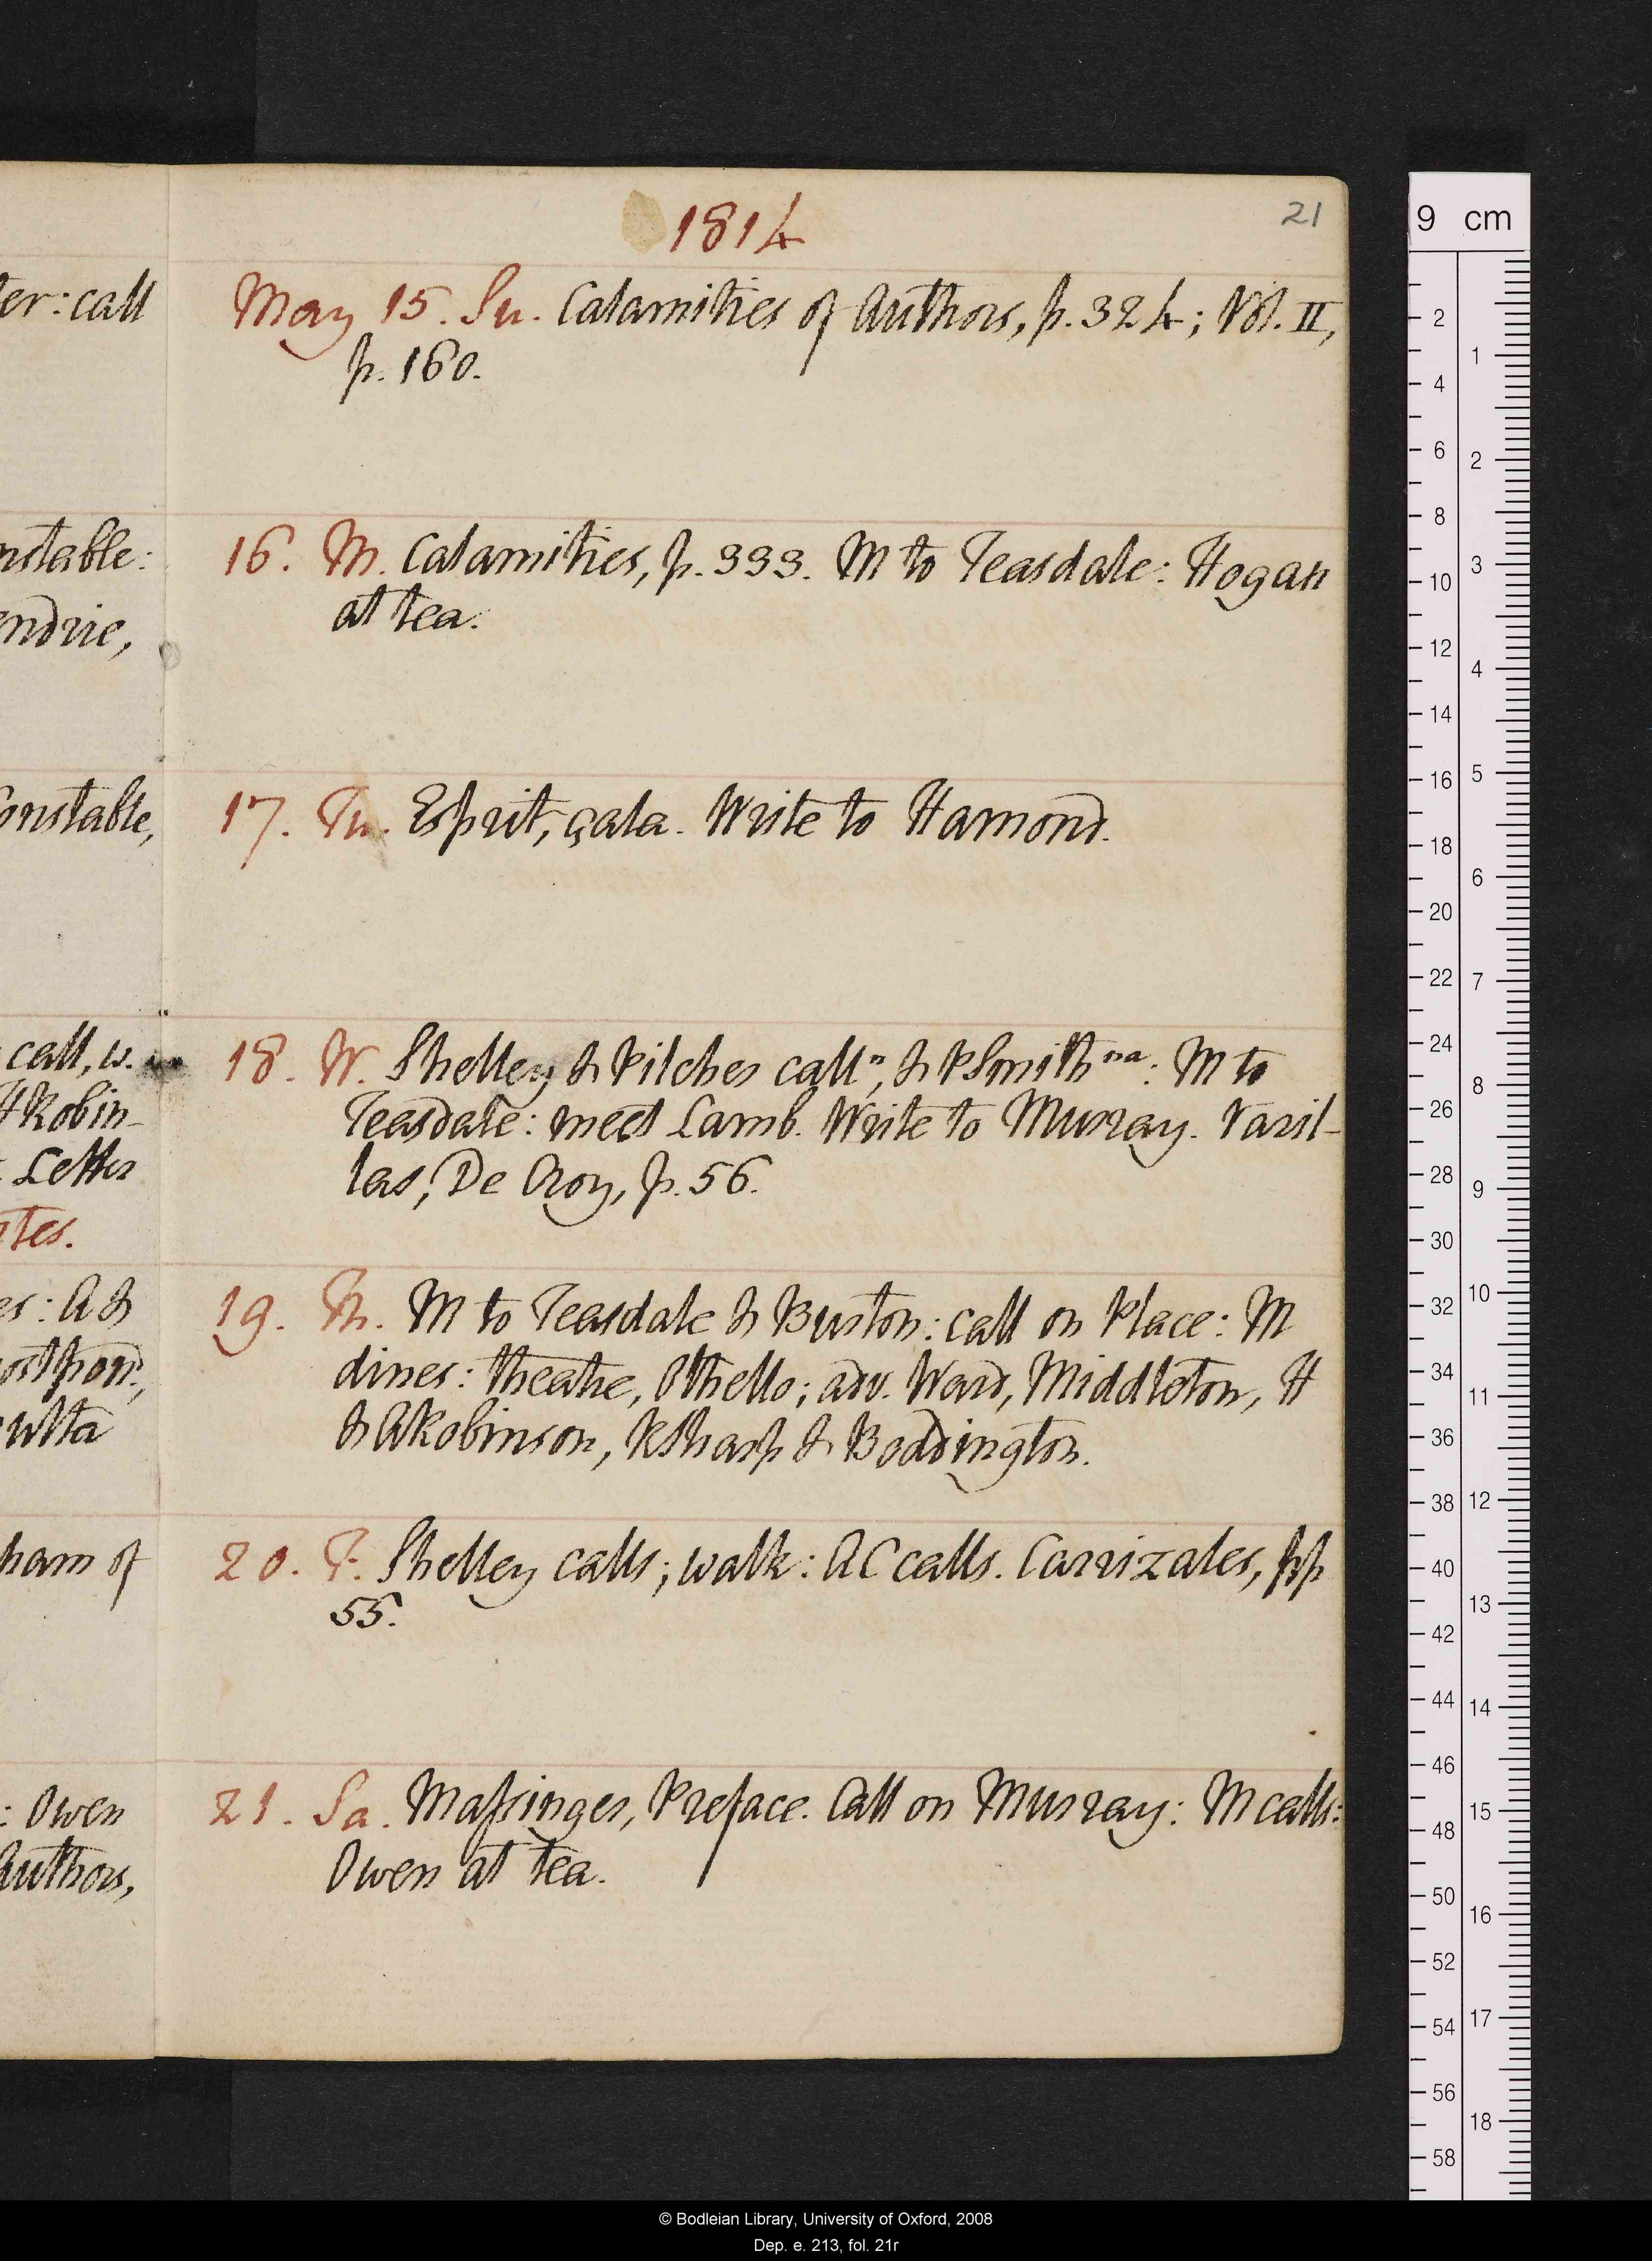 1814
21
May 15. Su. Calamities of Authors, p. 324; Vol. II,
p. 160.
16. M. Calamities, p. 333. M to Teasdale: Hogan
at tea.
17. Tu. Esprit, çala. Write to Hamond.
18. W. Shelley & Pilches callⁿ, & PSmithⁿᵃ: M to
Teasdale: meet Lamb. Write to Murray. Varil-
las, De Croy, p. 56.
19. Th. M to Teasdale & Buxton: call on Place: M
dines: theatre, Othello; adv. Ward, Middleton, H
& ARobinson, RSharp & Boddington.
20. F. Shelley calls; walk: AC calls. Carrizales, pp
55.
21. Sa. Maſsinger, Preface. Call on Murray: M calls:
Owen at tea.
ter: call
nstable:
endrie,
Constable,
call, w.
HRobin-
Letter
tes.
es: A &
ostpond,
ulta
ham of
: Owen
Authors,
9 cm
2
4
6
8
10
12
14
16
18
20
22
24
26
28
30
32
34
36
38
40
42
44
46
48
50
52
54
56
58
1
2
3
4
5
6
7
8
9
10
11
12
13
14
15
16
17
18
© Bodleian Library, University of Oxford, 2008
Dep. e. 213, fol. 21r